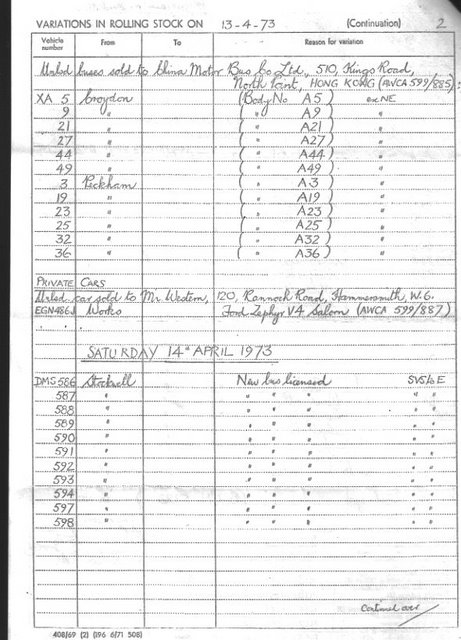 VARIATIONS IN ROLLING STOCK ON 13-4-73 (Continuation) 2
Vehicle number From To Reason for variation
Unlsd buses sold to China Motor Bus Co Ltd., 510, Kings Road,
North Point, HONG KONG (AWCA 599/885):
XA 5 Croydon (Body No A5) ex NE
9 " ( " A9 ) "
21 " ( " A21 ) "
27 " ( " A27 ) "
44 " ( " A44 ) "
49 " ( " A49 ) "
3 Peckham ( " A3 ) "
19 " ( " A19 ) "
23 " ( " A23 ) "
25 " ( " A25 ) "
32 " ( " A32 ) "
36 " ( " A36 ) "
PRIVATE CARS
Unlsd car sold to Mr Western, 120, Rannoch Road, Hammersmith, W.6.
EGN486J Works Ford Zephyr V4 Saloon (AWCA 599/887)
SATURDAY 14th APRIL 1973
DMS 586 Stockwell New bus licensed SVS to E
587 " " " " " "
588 " " " " " "
589 " " " " " "
590 " " " " " "
591 " " " " " "
592 " " " " " "
593 " " " " " "
594 " " " " " "
597 " " " " " "
598 " " " " " "
Continued over
408/69 (2) (196 6/71 508)